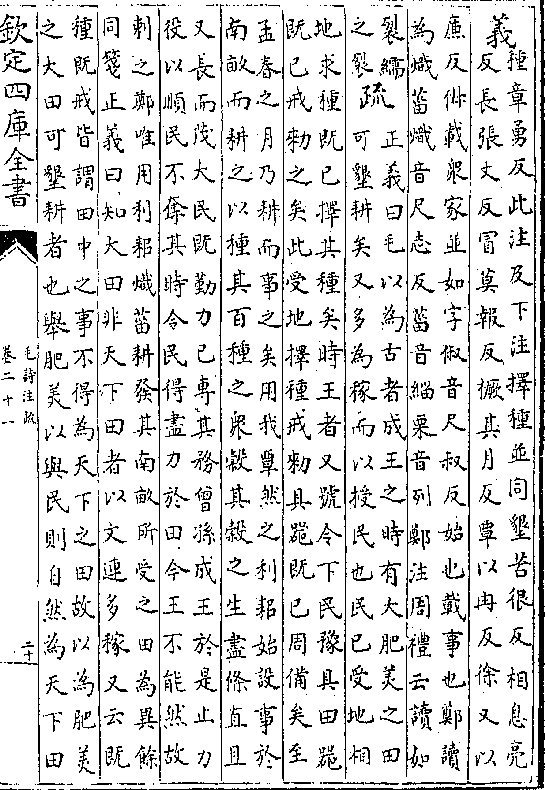 義
種章勇反此注及下注擇種並同墾苦很反相息亮
反長張丈反冒莫報反橛其月反覃以冉反徐又以
廉反俶載衆家並如字俶音尺叔反始也載事也鄭讀
為熾菑熾音尺志反菑音緇栗音列鄭注周禮云讀如
裂繻
之裂
疏
正義曰毛以為古者成王之時有大肥美之田
可墾耕矣又多為稼而以授民也民已受地相
地求種既已擇其種矣時王者又號令下民豫具田器
既已戒勑之矣此受地擇種戒勑具器既已周備矣至
孟春之月乃耕而事之矣用我覃然之利耜始設事於
南畝而耕之以種其百種之衆穀其穀之生盡條直且
又長而茂大民既勤力已專其務曾孫成王於是止力
役以順民不奪其時令民得盡力於田今王不能然故
刺之鄭唯用利耜熾菑耕發其南畝所受之田為異餘
同箋正義曰知大田非天下田者以文連多稼又云既
種既戒皆謂田中之事不得為天下之田故以為肥美
之大田可墾耕者也舉肥美以與民則自然為天下田
欽定四庫全書
毛詩注疏
卷二十一
二十